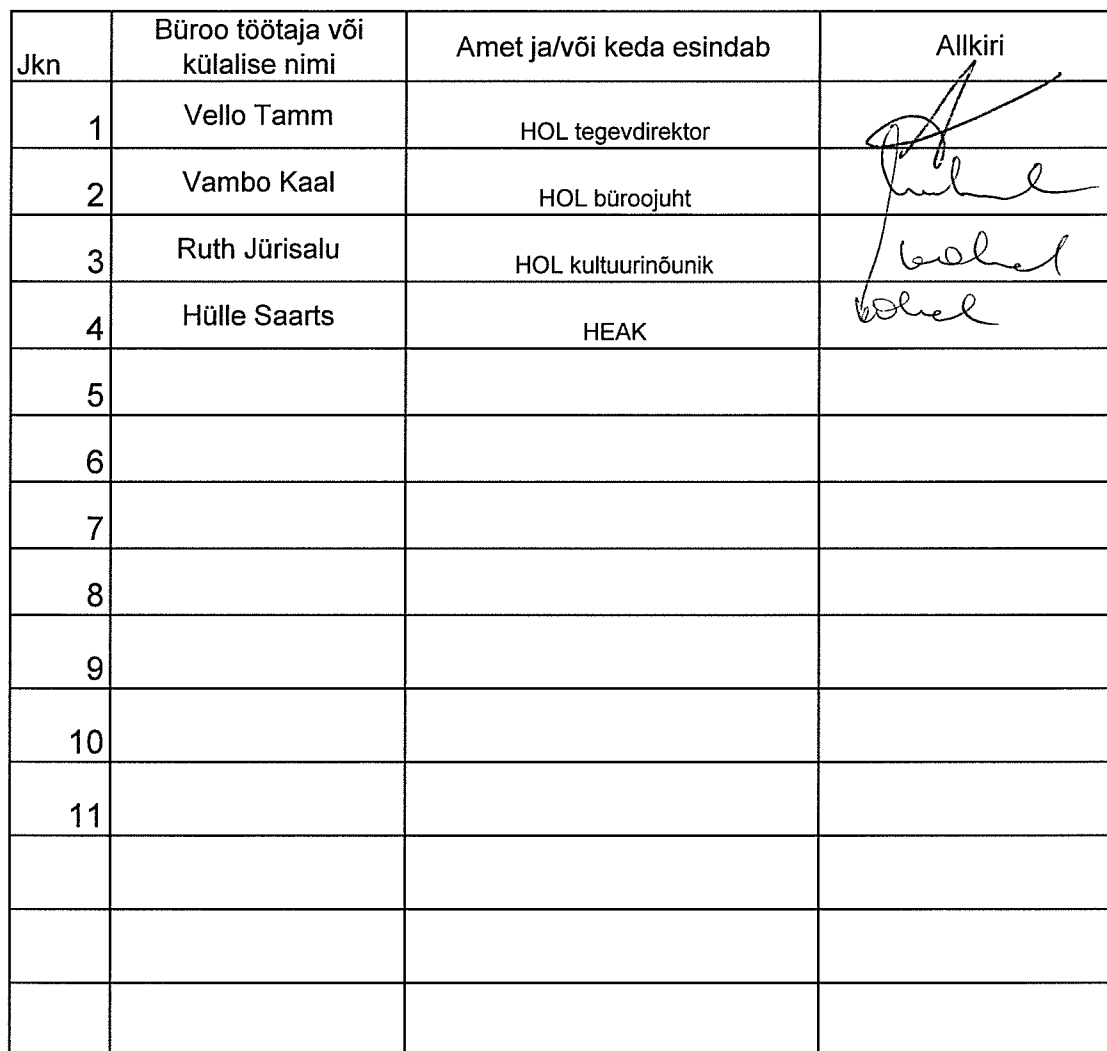 Jkn
Büroo töötaja või
külalise nimi
Amet ja/või keda esindab
Allkiri
1
Vello Tamm
HOL tegevdirektor
2
Vambo Kaal
HOL büroojuht
3
Ruth Jürisalu
HOL kultuurinõunik
4
Hülle Saarts
HEAK
5
6
7
8
9
10
11